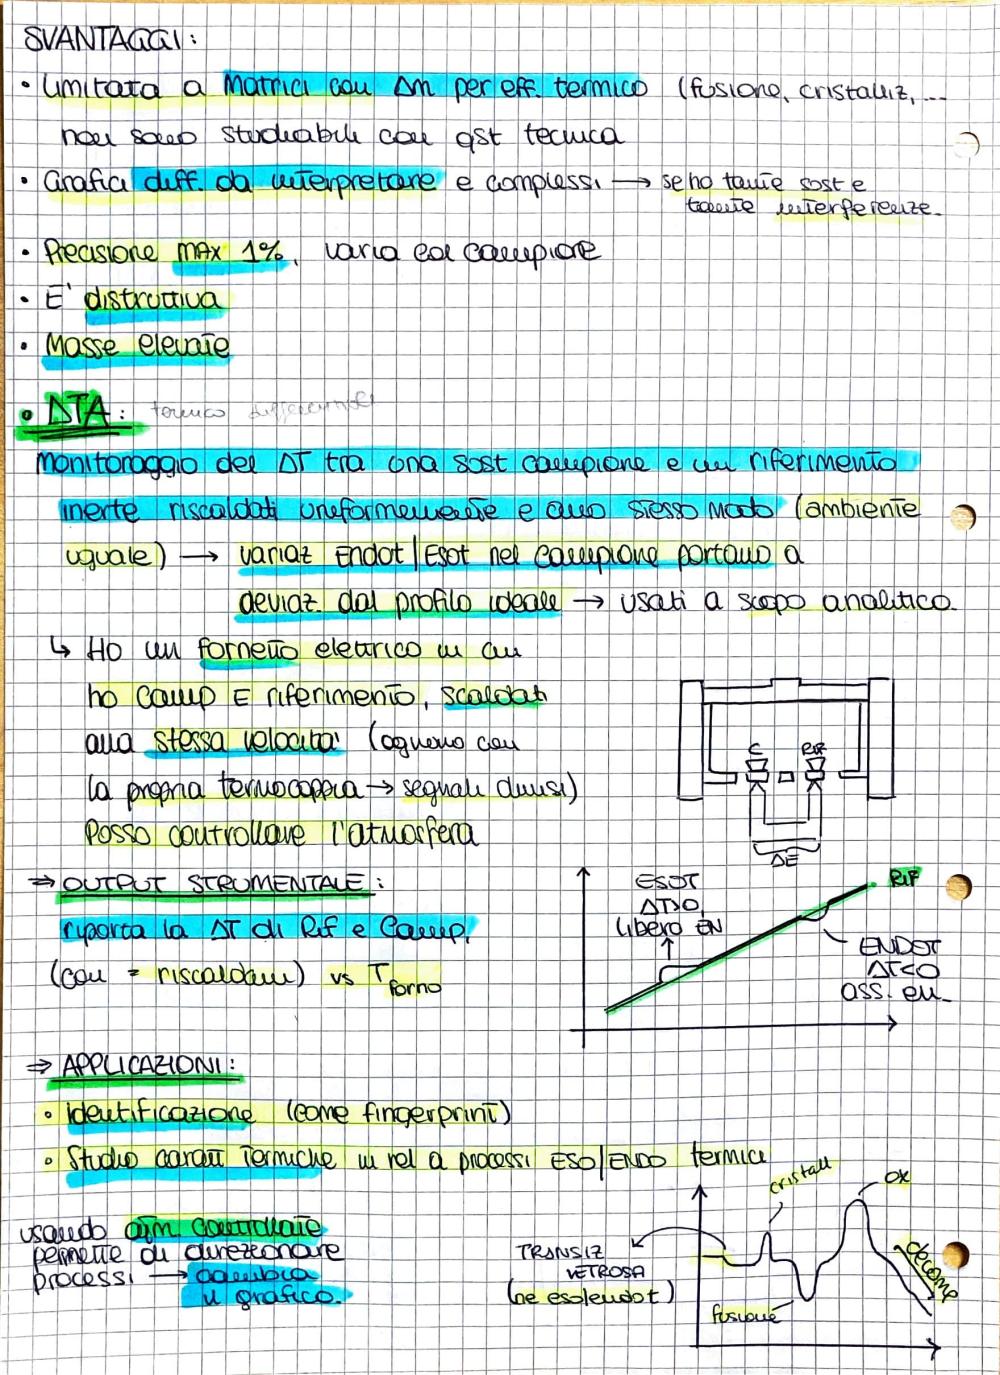 SVANTAGGI:
• Limitata a Matrici con Δm per eff. termico (fusione, cristalliz, ...
non sono studiabili con qst tecnica
• Grafici diff. da interpretare e complessi → se ho tante sost e
tante interferenze.
• Precisione MAX 1%, varia col campione
• E' distruttiva
• Masse elevate
• DTA: termico differenziale
Monitoraggio del ΔT tra una sost campione e un riferimento
inerte riscaldati uniformemente e allo stesso modo (ambiente
uguale) → variaz Endot/Esot nel campione portano a
deviaz. dal profilo ideale → usati a scopo analitico.
↳ Ho un fornetto elettrico in cui
ho camp E riferimento, scaldati
alla stessa velocità (ognuno con
la propria termocoppia → segnali divisi)
Posso controllare l'atmosfera
C RIF
ΔE
⇒ OUTPUT STRUMENTALE:
riporta la ΔT di Rif e Camp.
(con = riscaldam) vs T forno
ESOT
ΔT>0,
libero EN
RIF
ENDOT
ΔT<0
ass. en.
⇒ APPLICAZIONI:
• identificazione (come fingerprint)
• Studio caratt termiche in rel a processi ESO/ENDO termici
usando atm controllate
permette di direzionare
processi → cambia
il grafico.
TRANSIZ
VETROSA
(ne eso/endot)
cristall
OX
fusione
decomp